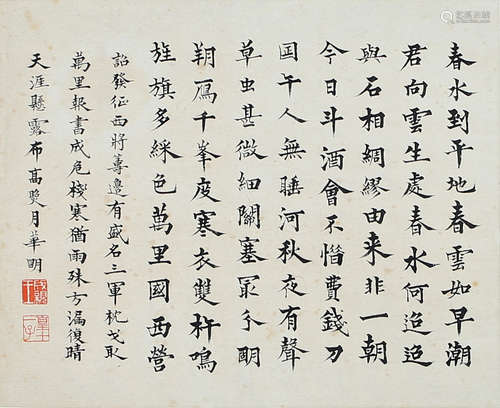 春水到平地春雲如早潮
君向雲生處春水何迢迢
與石相綢繆由来非一朝
今日斗酒會不惜費錢刀
国午人無睡河秋夜有聲
草虫甚微細關塞
翔鴈千峯度寒衣雙杵鳴
旌旗多綵色萬里國西營
詔發征西將蓴邉有盛名三軍枕戈取
萬里報書成危棧寒猶雨殊方漏復晴
天涯懸露布高月華明